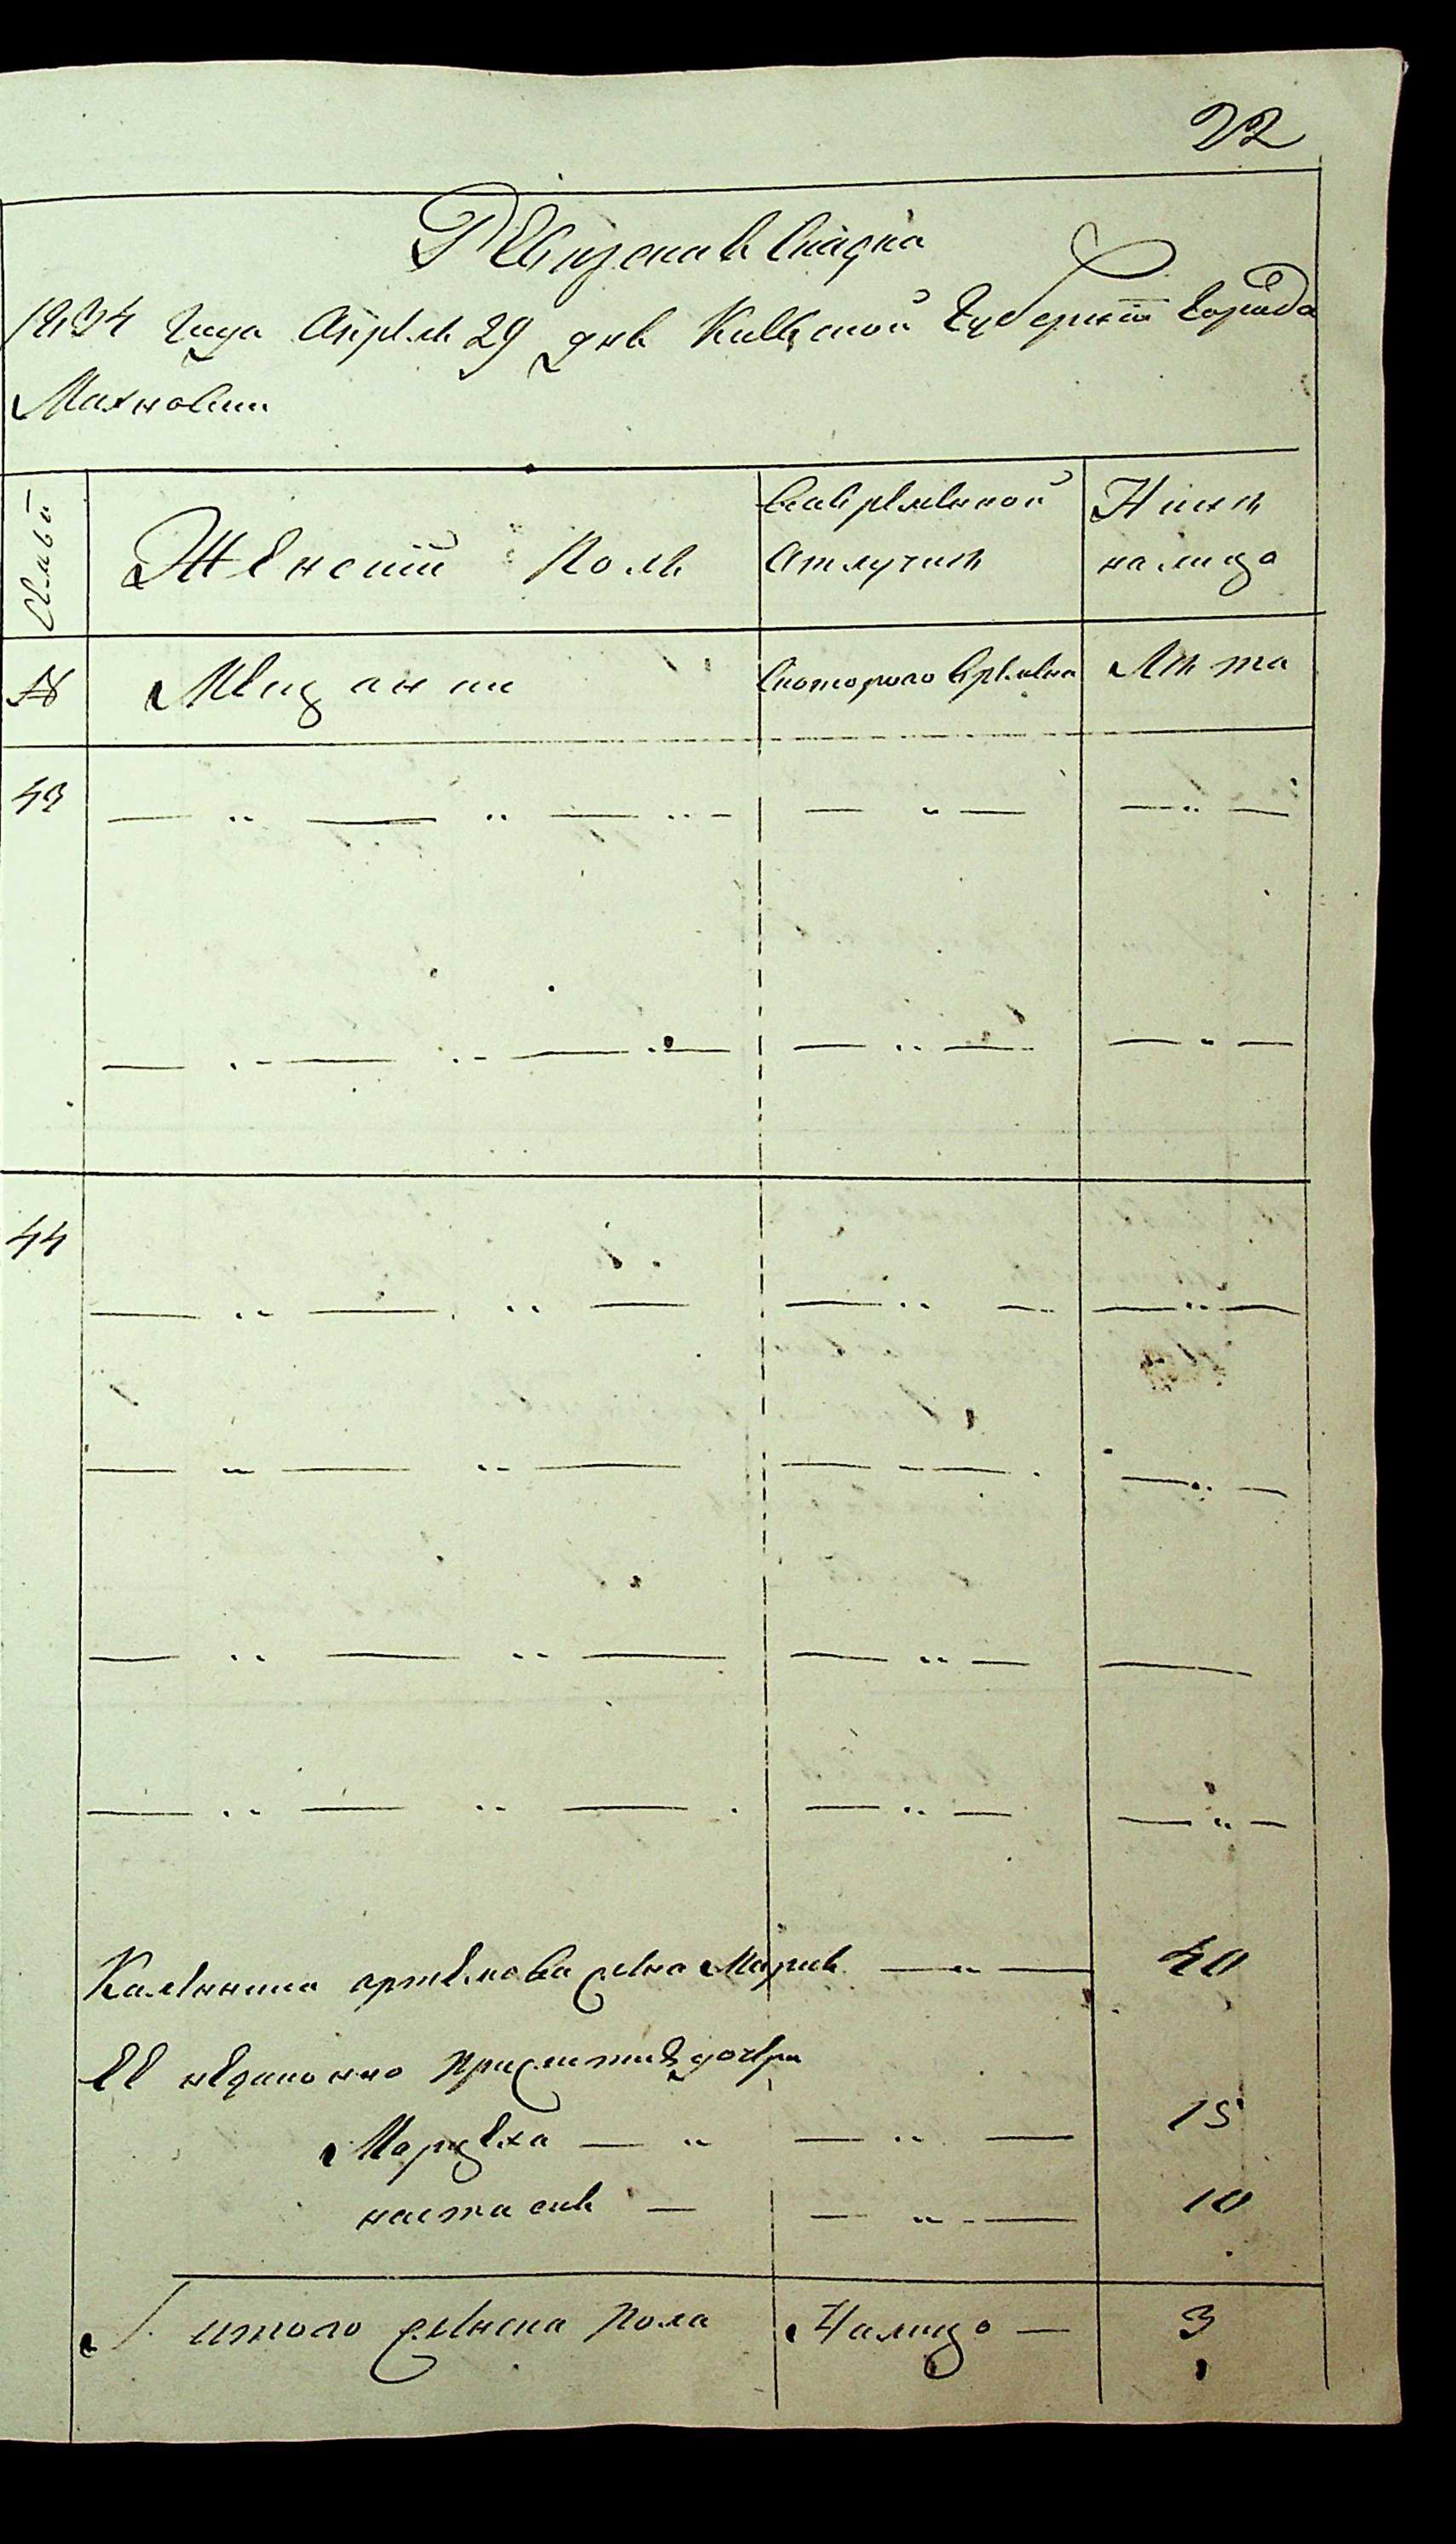 22
Ревизская Сказка
1834 года Апреля 29 дня Киевской Губернии Города
Махновки
Семьи
Женский Полъ
Вовременной
Отлучки
Ныне
налицо
№
Мещанки
Скоторого времени
Лѣта
43
44
Каленика артемова жена Мария 40
Ее
дочери
Марцеха 15
настасия 10
итого женска пола Налицо 3